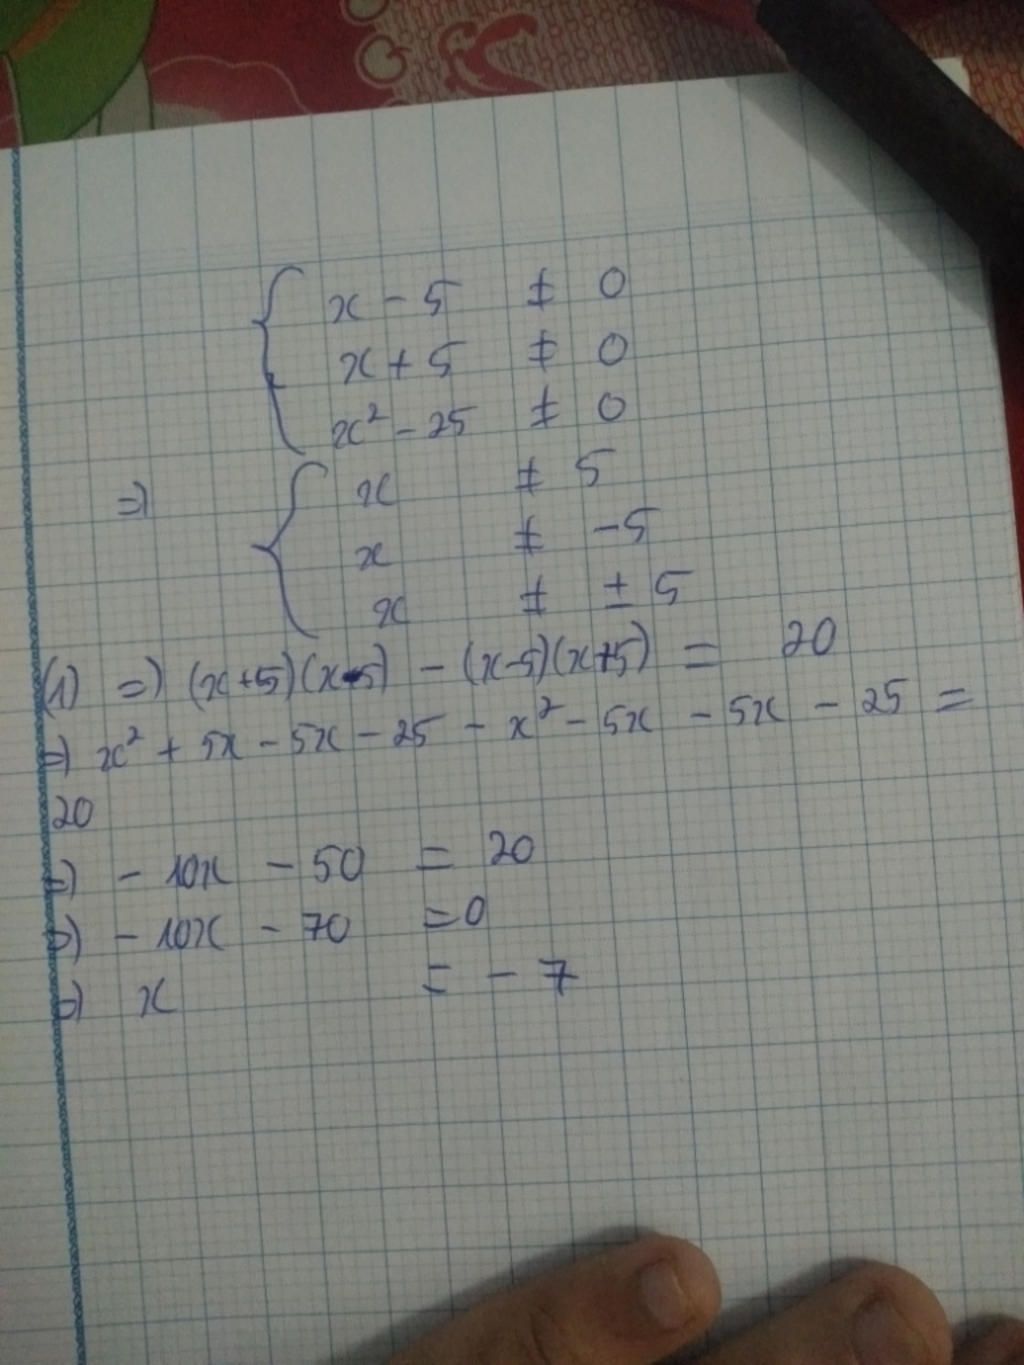 x - 5 ≠ 0
x + 5 ≠ 0
x² - 25 ≠ 0
=) x ≠ 5
x ≠ -5
x ≠ ± 5
(1) =) (x+5)(x-5) - (x-5)(x+5) = 20
=) x² + 5x - 5x - 25 - x² - 5x - 5x - 25 =
20
=) - 10x - 50 = 20
=) - 10x - 70 = 0
=) x = - 7